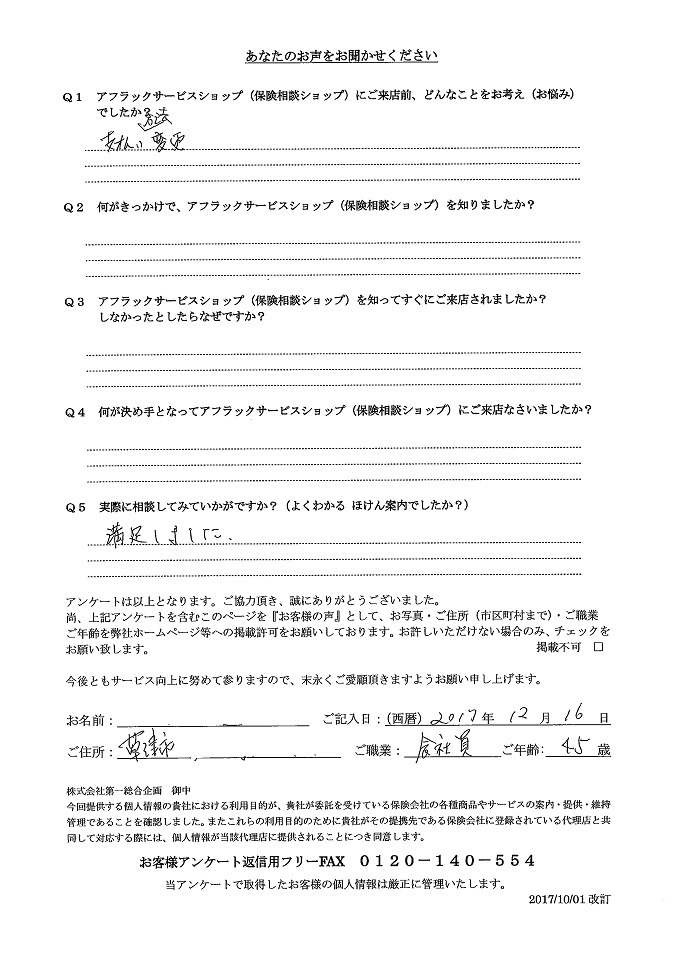 あなたのお声をお聞かせください
Q1 アフラックサービスショップ（保険相談ショップ）にご来店前、どんなことをお考え（お悩み）
でしたか？
支払い方法変更
Q2 何がきっかけで、アフラックサービスショップ（保険相談ショップ）を知りましたか？
Q3 アフラックサービスショップ（保険相談ショップ）を知ってすぐにご来店されましたか？
しなかったとしたらなぜですか？
Q4 何が決め手となってアフラックサービスショップ（保険相談ショップ）にご来店なさいましたか？
Q5 実際に相談してみていかがですか？（よくわかる ほけん案内でしたか？）
満足しました.
アンケートは以上となります。ご協力頂き、誠にありがとうございました。
尚、上記アンケートを含むこのページを『お客様の声』として、お写真・ご住所（市区町村まで）・ご職業
ご年齢を弊社ホームページ等への掲載許可をお願いしております。お許しいただけない場合のみ、チェックを
お願い致します。 掲載不可 □
今後ともサービス向上に努めて参りますので、末永くご愛顧頂きますようお願い申し上げます。
お名前： ご記入日：（西暦）2017年 12月 16日
ご住所：草津市 ご職業：会社員 ご年齢：45歳
株式会社第一総合企画 御中
今回提供する個人情報の貴社における利用目的が、貴社が委託を受けている保険会社の各種商品やサービスの案内・提供・維持
管理であることを確認しました。またこれらの利用目的のために貴社がその提携先である保険会社に登録されている代理店と共
同して対応する際には、個人情報が当該代理店に提供されることにつき同意します。
お客様アンケート返信用フリーFAX 0120－140－554
当アンケートで取得したお客様の個人情報は厳正に管理いたします。
2017/10/01 改訂